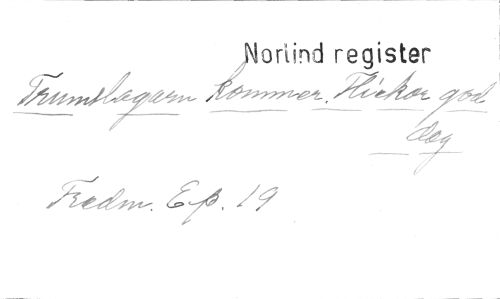 Norlind register
Trumslagarn kommer. Flickor god
dag
Fredm. Ep. 19